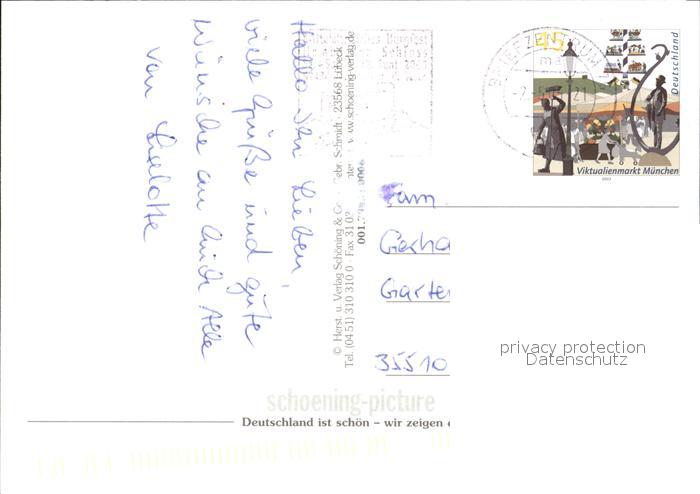 Hallo Ihr Lieben,
viele Grüße und gute
Wünsche an Euch Alle
von Lieselotte
© Herst. u. Verlag Schöning & Co
ebr. Schmidt · 23568 Lübeck
Tel. (0451) 310 310 0 · Fax 31 03
www.schoening-verlag.de
001.
0006
BRIEFZENTRUM
45
Deutschland
Viktualienmarkt München
2003
Fam
Gerha
Garte
35510
privacy protection
Datenschutz
schoening-picture
Deutschland ist schön – wir zeigen e